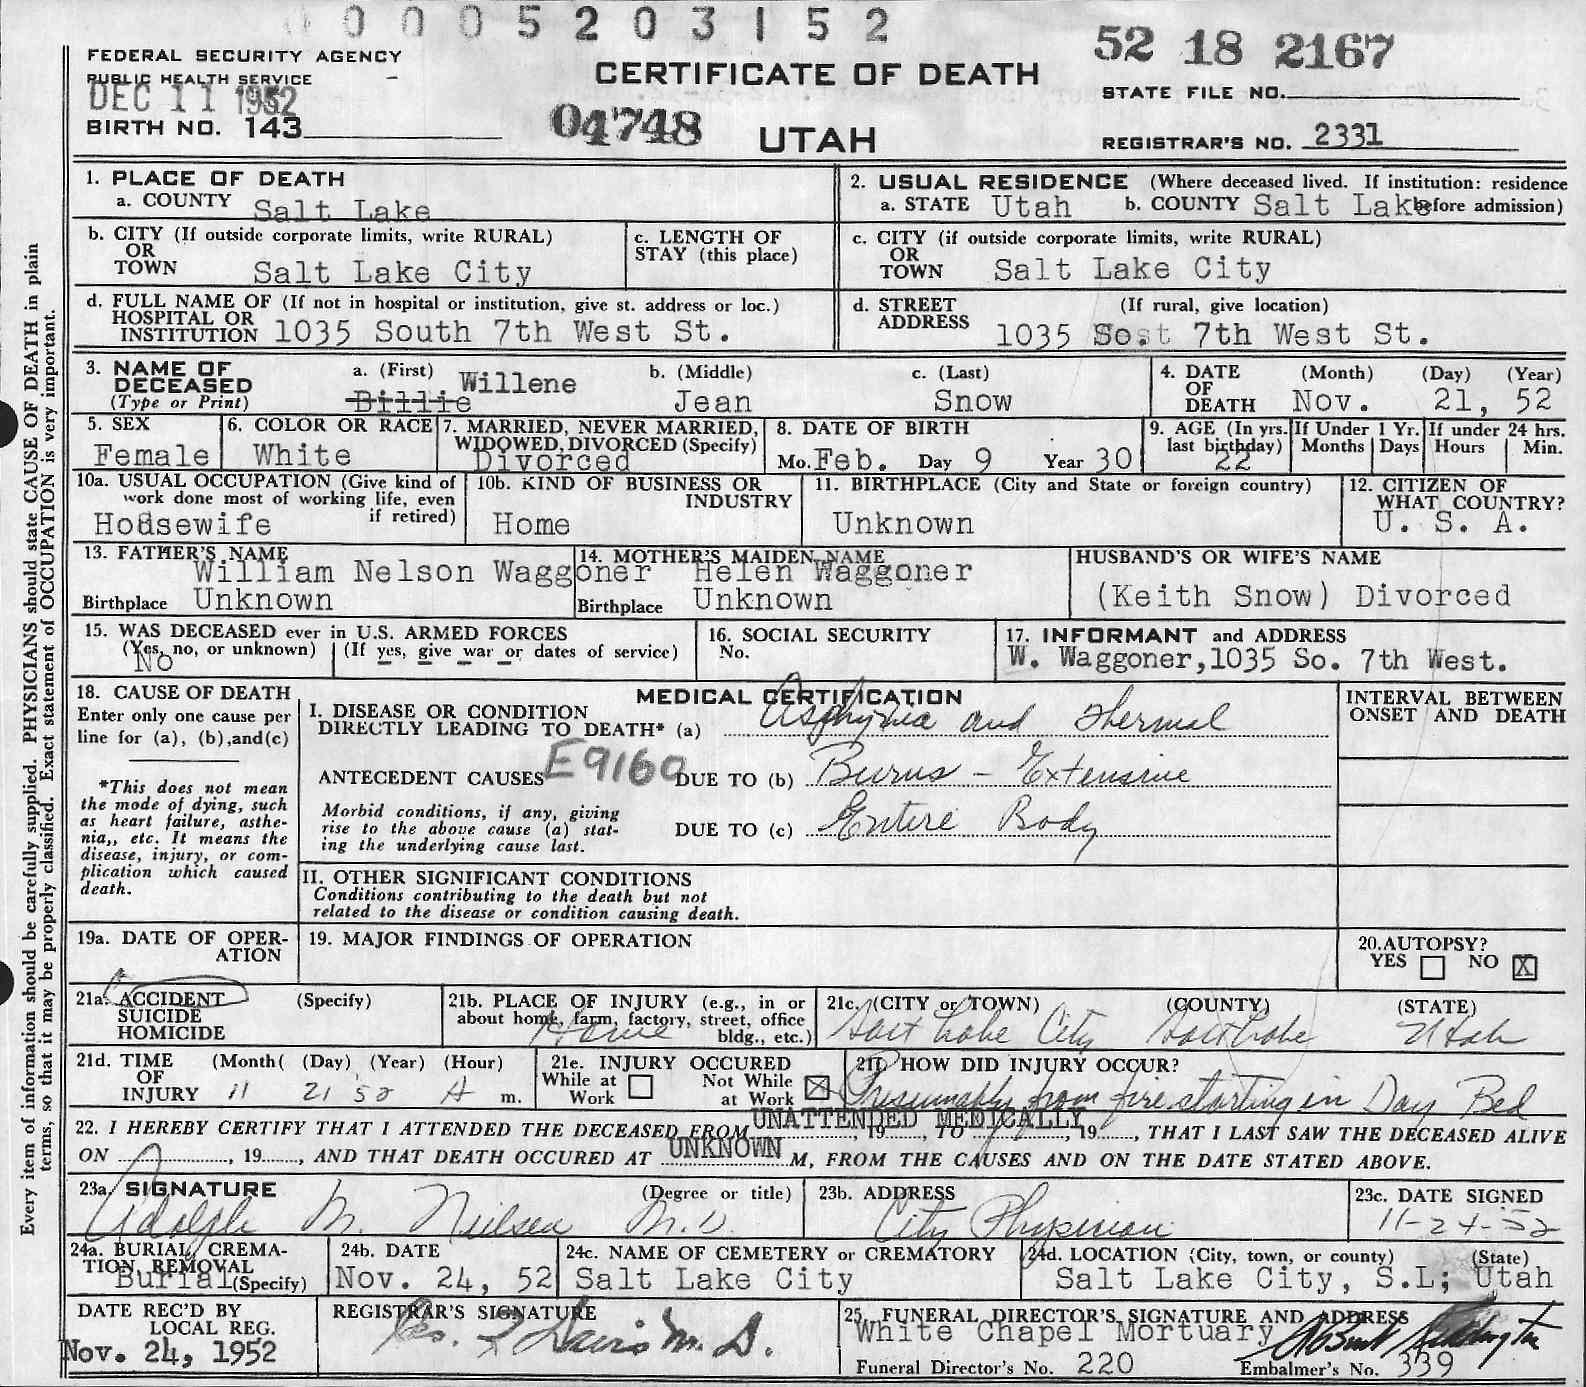 0 0 0 5 2 0 3 1 5 2
52 18 2167
FEDERAL SECURITY AGENCY
PUBLIC HEALTH SERVICE
DEC 11 1952
BIRTH NO. 143
CERTIFICATE OF DEATH
04748 UTAH
STATE FILE NO.
REGISTRAR'S NO. 2331
Every item of information should be carefully supplied. PHYSICIANS should state CAUSE OF DEATH in plain
terms, so that it may be properly classified. Exact statement of OCCUPATION is very important.
1. PLACE OF DEATH
a. COUNTY Salt Lake
2. USUAL RESIDENCE (Where deceased lived. If institution: residence
a. STATE Utah b. COUNTY Salt Lake before admission)
b. CITY (If outside corporate limits, write RURAL)
OR
TOWN Salt Lake City
c. LENGTH OF
STAY (this place)
c. CITY (if outside corporate limits, write RURAL)
OR
TOWN Salt Lake City
d. FULL NAME OF (If not in hospital or institution, give st. address or loc.)
HOSPITAL OR
INSTITUTION 1035 South 7th West St.
d. STREET (If rural, give location)
ADDRESS 1035 7th West St.
3. NAME OF
DECEASED
(Type or Print)
a. (First) Willene
Billie
b. (Middle)
Jean
c. (Last)
Snow
4. DATE (Month) (Day) (Year)
OF
DEATH Nov. 21, 52
5. SEX
Female
6. COLOR OR RACE
White
7. MARRIED, NEVER MARRIED,
WIDOWED, DIVORCED (Specify)
Divorced
8. DATE OF BIRTH
Mo. Feb. Day 9 Year 30
9. AGE (In yrs.
last birthday)
22
If Under 1 Yr.
Months Days
If under 24 hrs.
Hours Min.
10a. USUAL OCCUPATION (Give kind of
work done most of working life, even
if retired)
Housewife
10b. KIND OF BUSINESS OR
INDUSTRY
Home
11. BIRTHPLACE (City and State or foreign country)
Unknown
12. CITIZEN OF
WHAT COUNTRY?
U. S. A.
13. FATHER'S NAME
William Nelson Waggoner
Birthplace Unknown
14. MOTHER'S MAIDEN NAME
Helen Waggoner
Birthplace Unknown
HUSBAND'S OR WIFE'S NAME
(Keith Snow) Divorced
15. WAS DECEASED ever in U.S. ARMED FORCES
(Yes, no, or unknown) (If yes, give war or dates of service)
No
16. SOCIAL SECURITY
No.
17. INFORMANT and ADDRESS
W. Waggoner,1035 So. 7th West.
18. CAUSE OF DEATH
Enter only one cause per
line for (a), (b),and(c)
*This does not mean
the mode of dying, such
as heart failure, asthe-
nia,, etc. It means the
disease, injury, or com-
plication which caused
death.
MEDICAL CERTIFICATION
I. DISEASE OR CONDITION
DIRECTLY LEADING TO DEATH* (a) Asphyxia and Thermal
ANTECEDENT CAUSES E9160 DUE TO (b) Burns - Extensive
Morbid conditions, if any, giving
rise to the above cause (a) stat-
ing the underlying cause last.
DUE TO (c) Entire Body
INTERVAL BETWEEN
ONSET AND DEATH
II. OTHER SIGNIFICANT CONDITIONS
Conditions contributing to the death but not
related to the disease or condition causing death.
19a. DATE OF OPER-
ATION
19. MAJOR FINDINGS OF OPERATION
20. AUTOPSY?
YES NO X
21a. ACCIDENT (Specify)
SUICIDE
HOMICIDE
21b. PLACE OF INJURY (e.g., in or
about home, farm, factory, street, office
bldg., etc.)
Home
21c. (CITY or TOWN) (COUNTY) (STATE)
Salt Lake City Salt Lake Utah
21d. TIME (Month( (Day) (Year) (Hour)
OF
INJURY 11 21 '52 A m.
21e. INJURY OCCURED
While at Work Not While at Work X
21f. HOW DID INJURY OCCUR?
Presumably from fire starting in Day Bed
22. I HEREBY CERTIFY THAT I ATTENDED THE DECEASED FROM UNATTENDED MEDICALLY, 19, TO, 19, THAT I LAST SAW THE DECEASED ALIVE
ON, 19, AND THAT DEATH OCCURED AT UNKNOWN M, FROM THE CAUSES AND ON THE DATE STATED ABOVE.
23a. SIGNATURE (Degree or title)
Adolph M. Nielsen M.D
23b. ADDRESS
City Physician
23c. DATE SIGNED
11-24-52
24a. BURIAL, CREMA-
TION, REMOVAL
Burial (Specify)
24b. DATE
Nov. 24, 52
24c. NAME OF CEMETERY or CREMATORY
Salt Lake City
24d. LOCATION (City, town, or county) (State)
Salt Lake City, S.L; Utah
DATE REC'D BY
LOCAL REG.
Nov. 24, 1952
REGISTRAR'S SIGNATURE
Davis M. D.
25. FUNERAL DIRECTOR'S SIGNATURE AND ADDRESS
White Chapel Mortuary
Funeral Director's No. 220 Embalmer's No. 339